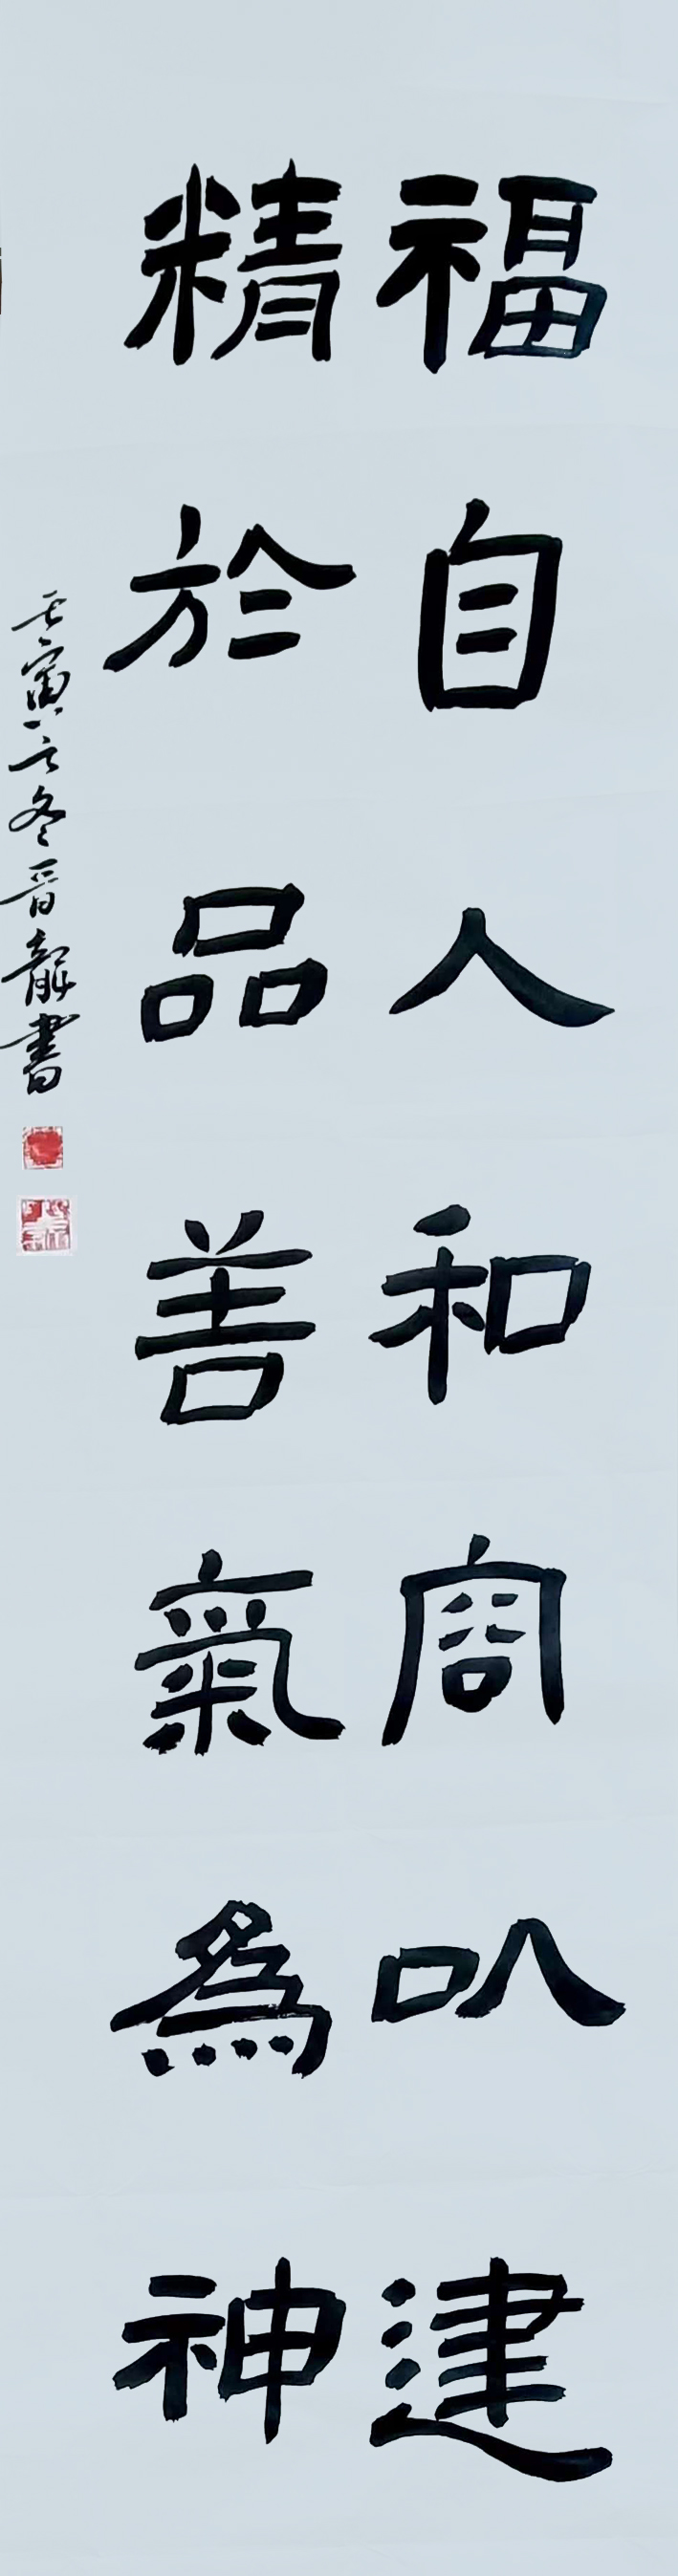 福自人和容以建
精於品善氣為神
壬寅之冬晉龍書